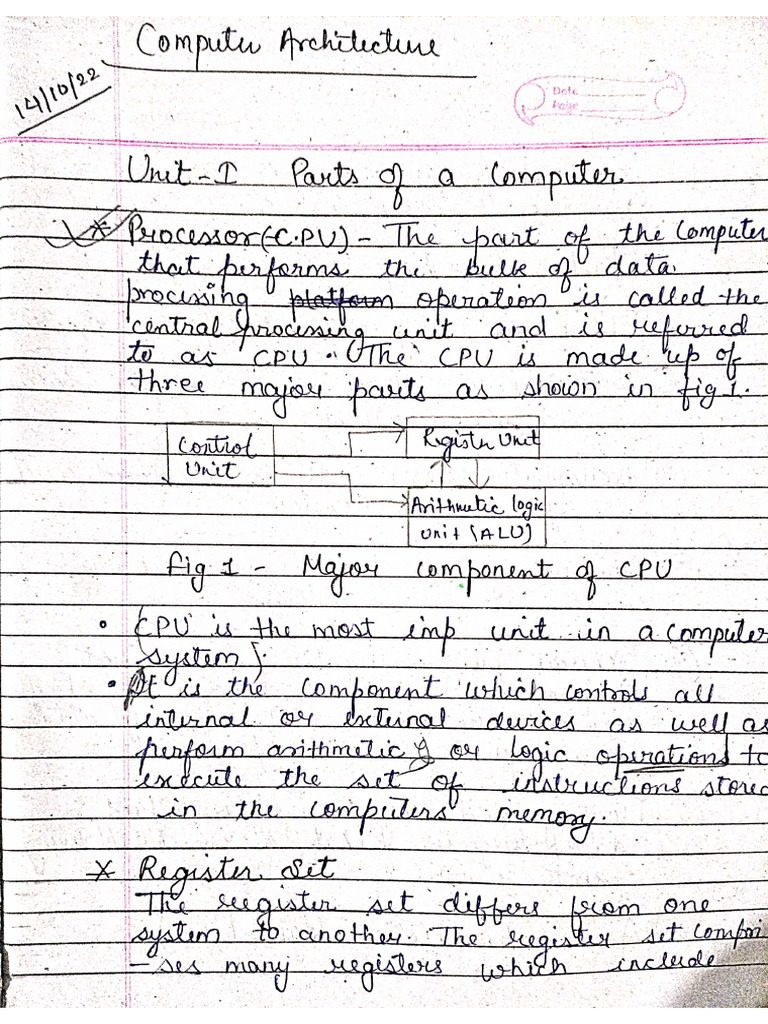 Computer Architecture
14/10/22
Date
Page
Unit-I Parts of a Computer
* Processor(-C.PU) - The part of the Computer
that performs the bulk of data
processing platform operation is called the
central processing unit and is referred
to as CPU. The CPU is made up of
three major parts as shown in fig 1.
Control
Unit
Register Unit
Arithmetic logic
unit (ALU)
fig 1 - Major component of CPU
• (CPU is the most imp unit in a computer
system).
• It is the component which controls all
internal or external devices as well as
perform arithmetic & or logic operations to
execute the set of instructions stored
in the computers memory.
* Register Set
The register set differs from one
system to another. The register set compri
-ses many registers which include